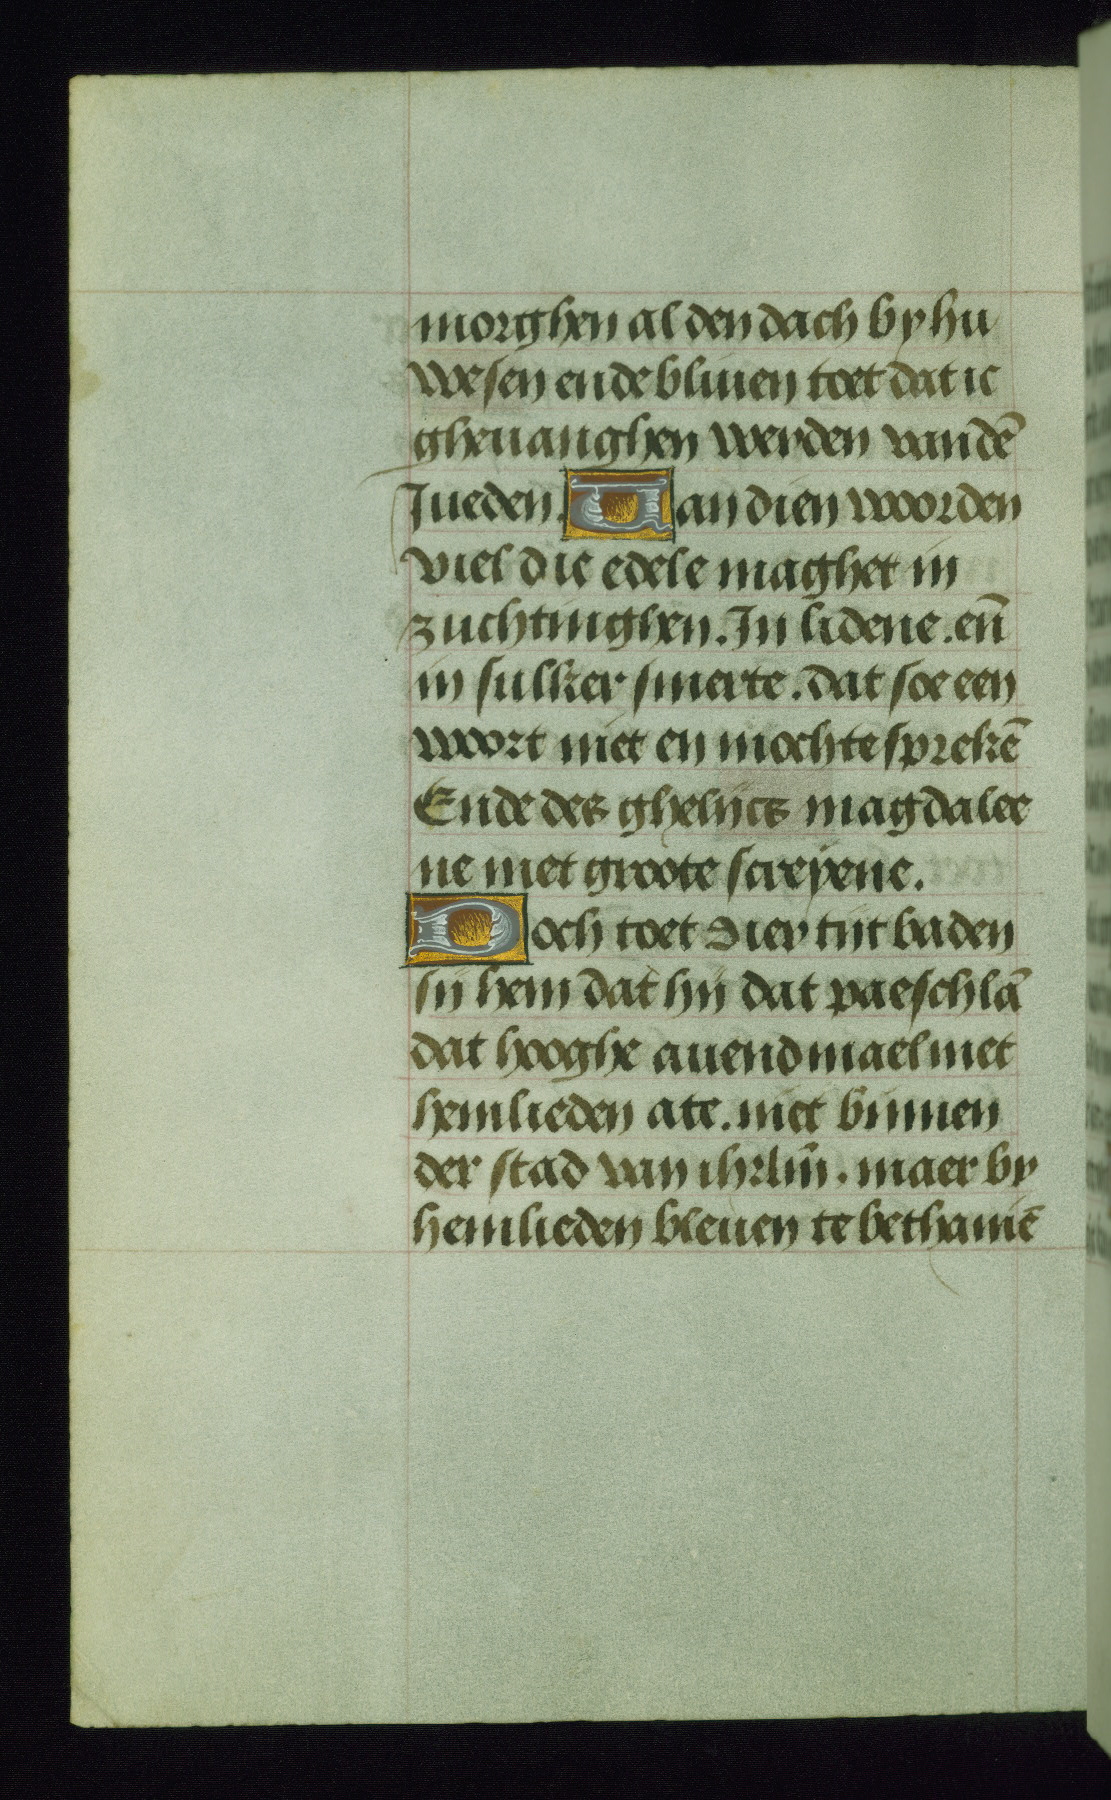 morghen al den dach by hu
wesen ende bliuen toet dat ic
gheuanghen werden vandē
Jueden. Van dien woorden
viel die edele maghet in
zuchtinghen. In lidene. en̄
in sulker smerte. dat soe een
woort niet en mochte sprekē
Ende des ghelijcs magdalee
ne met groote screyene.
Doch toet dier tijt baden
sij hem dat hij dat paeschlā
dat hooghe auendmael met
hemlieden ate. niet binnen
der stad van ihrlm̄. maer by
hemlieden bleuen te bethaniē